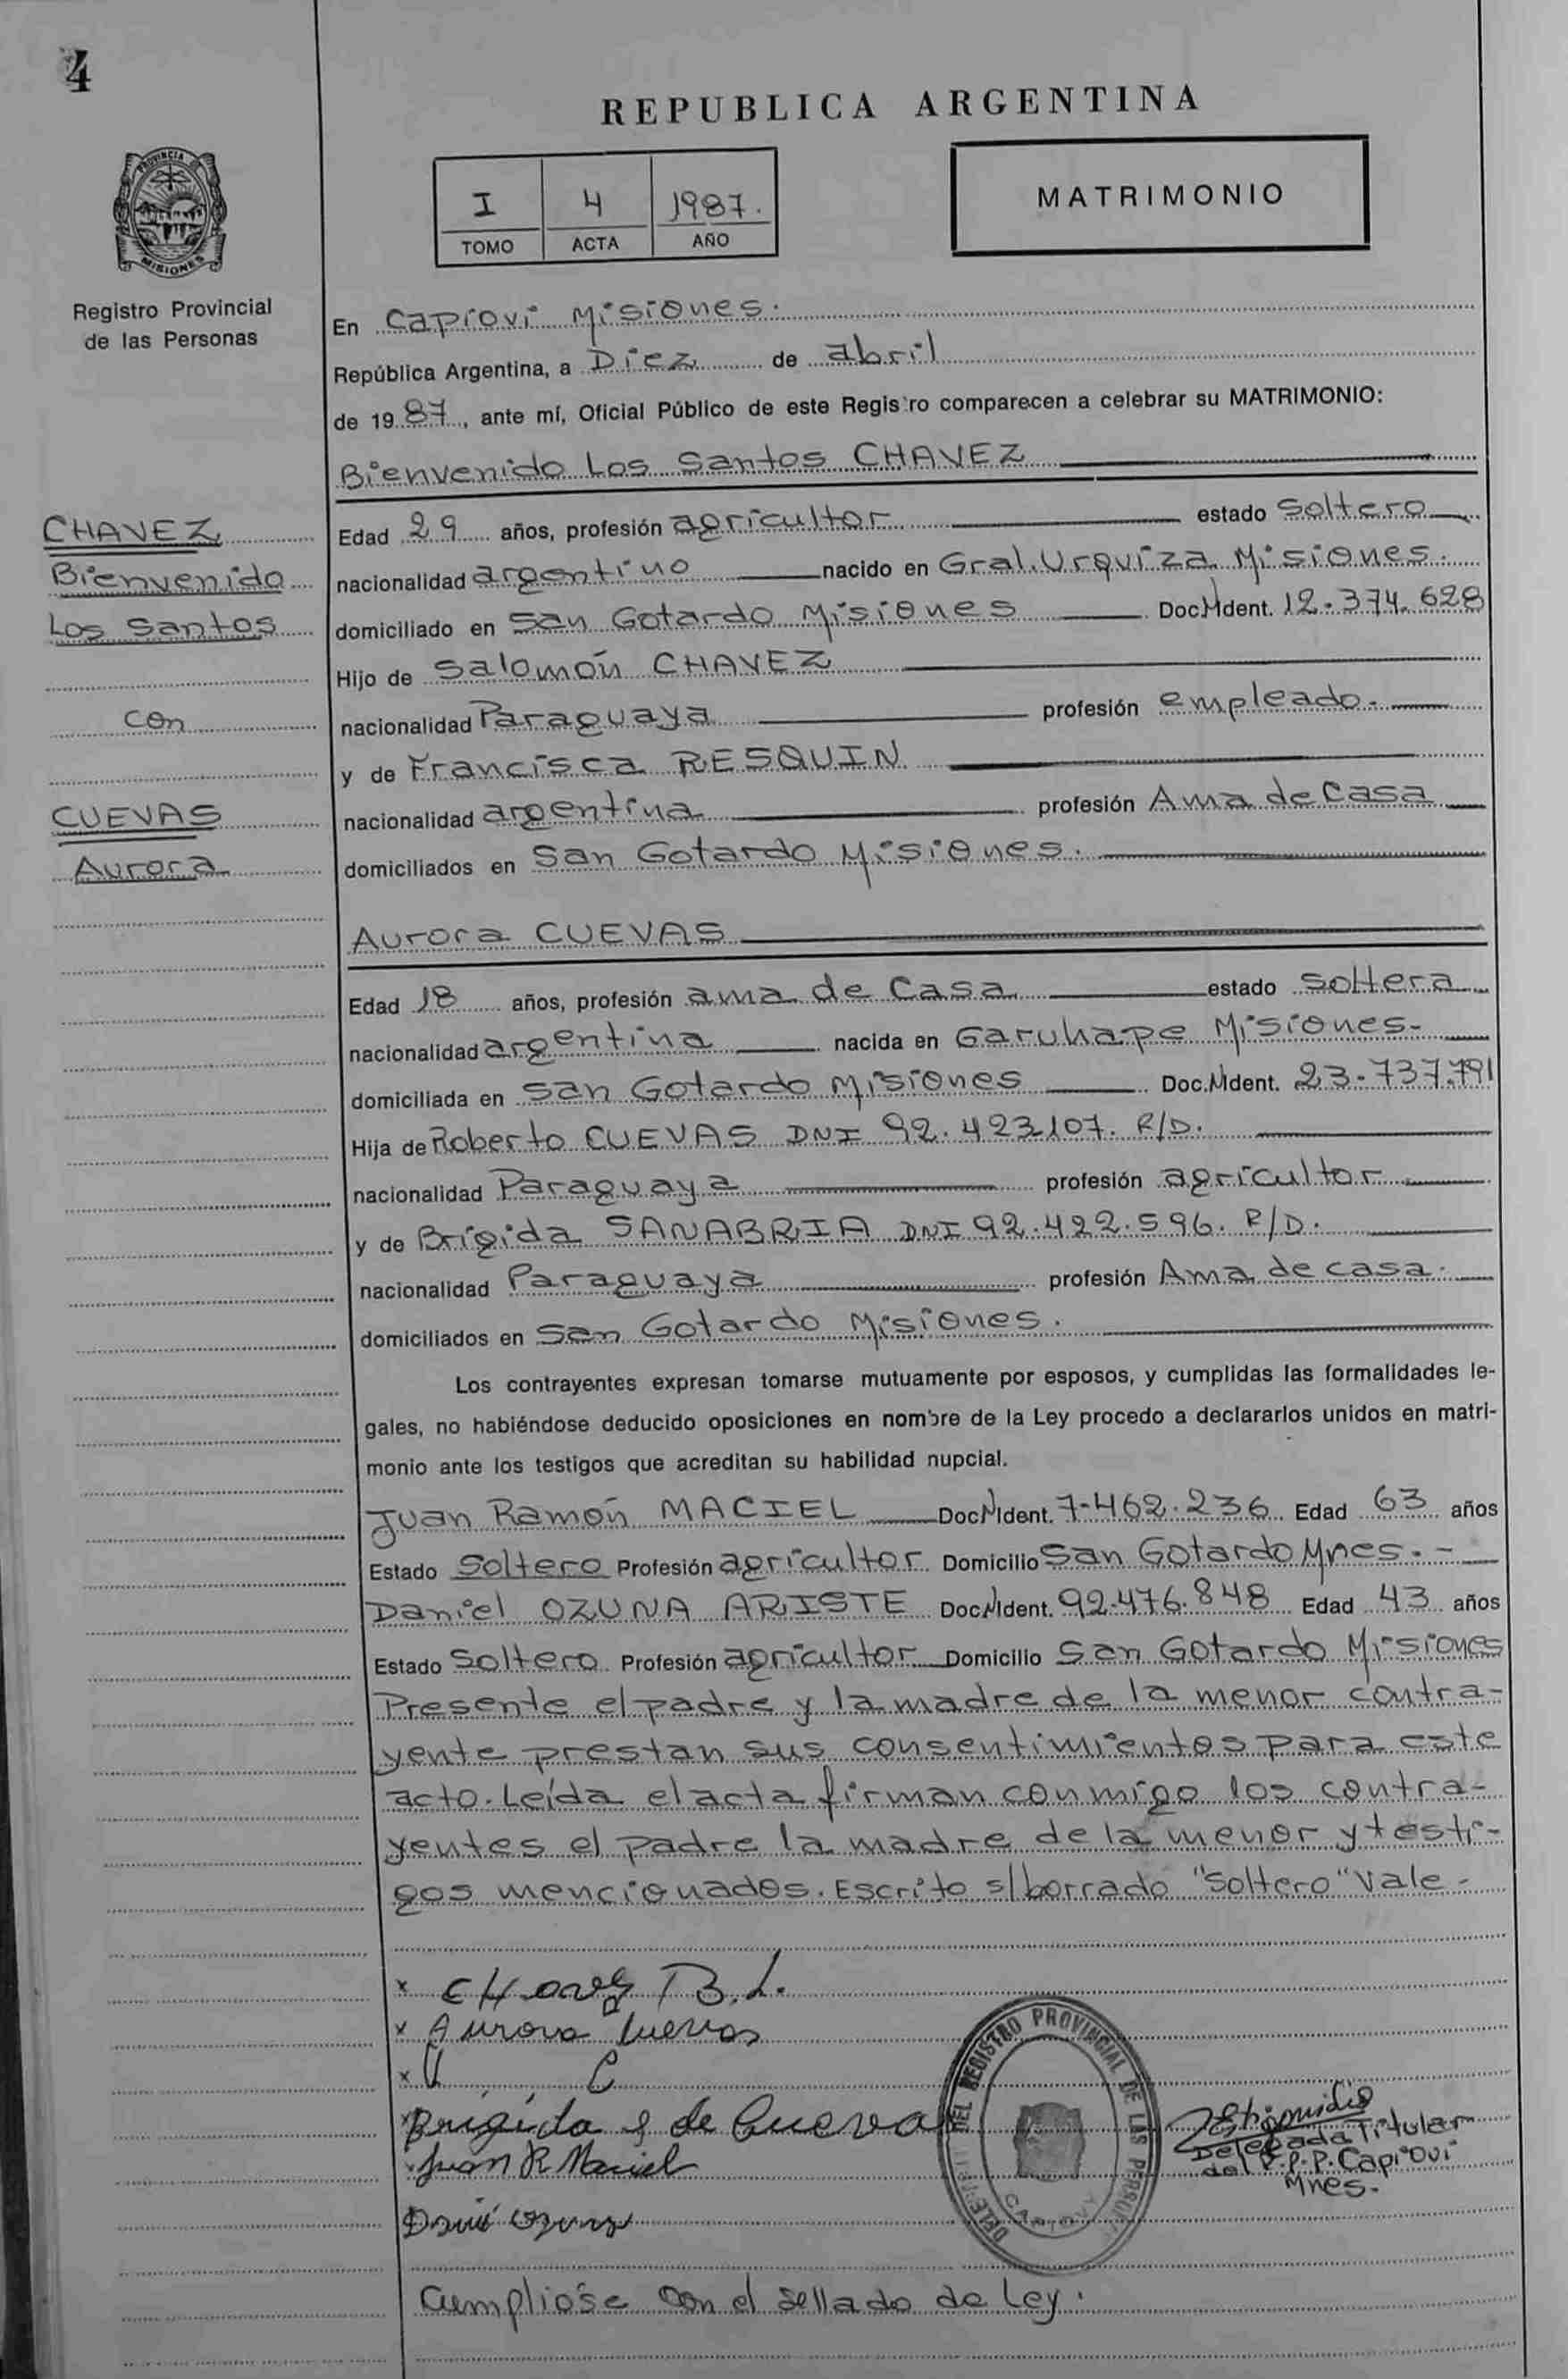 4
REPUBLICA ARGENTINA
PROVINCIA
MISIONES
Registro Provincial
de las Personas
I 4 1987.
TOMO ACTA AÑO
MATRIMONIO
En Capiovi Misiones.
República Argentina, a Diez de abril
de 1987, ante mí, Oficial Público de este Registro comparecen a celebrar su MATRIMONIO:
Bienvenido Los Santos CHAVEZ
CHAVEZ
Bienvenido
Los Santos
con
CUEVAS
Aurora
Edad 29 años, profesión agricultor estado Soltero
nacionalidad argentino nacido en Gral. Urquiza Misiones.
domiciliado en San Gotardo Misiones Doc.N Ident. 12.374.628
Hijo de Salomón CHAVEZ
nacionalidad Paraguaya profesión empleado.
y de Francisca RESQUIN
nacionalidad argentina profesión Ama de Casa
domiciliados en San Gotardo Misiones.
Aurora CUEVAS
Edad 18 años, profesión ama de Casa estado Soltera
nacionalidad argentina nacida en Garuhape Misiones-
domiciliada en San Gotardo Misiones Doc.N Ident. 23.737.791
Hija de Roberto CUEVAS DNI 92.423107. R/D.
nacionalidad Paraguaya profesión agricultor
y de Brígida SANABRIA DNI 92.422.596. R/D.
nacionalidad Paraguaya profesión Ama de casa.
domiciliados en San Gotardo Misiones.
Los contrayentes expresan tomarse mutuamente por esposos, y cumplidas las formalidades le-
gales, no habiéndose deducido oposiciones en nombre de la Ley procedo a declararlos unidos en matri-
monio ante los testigos que acreditan su habilidad nupcial.
Juan Ramón MACIEL Doc.N Ident. 7.462.236 Edad 63 años
Estado Soltero Profesión agricultor Domicilio San Gotardo Mnes.-
Daniel OZUNA ARISTE Doc.N Ident. 92.476.848 Edad 43 años
Estado Soltero Profesión agricultor Domicilio San Gotardo Misiones
Presente el padre y la madre de la menor contra-
yente prestan sus consentimientos para este
acto. Leída el acta firman conmigo los contra-
yentes el padre la madre de la menor y testi-
gos mencionados. Escrito s/borrado "Soltero" Vale-
x CHavez B.L.
x Aurora Cuevas
x C
x Brigida S de Cuevas
Juan R Maciel
DEL REGISTRO PROVINCIAL DE LAS PERSONAS
Delegada Titular
del R.P.P. Capiovi
Mnes.-
Cumplióse con el sellado de Ley.